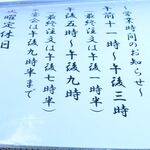 ～営業時間のお知らせ～
午前十一時～午後三時
（最終注文は午後一時半）
午後五時～午後九時
（最終注文は午後七時半）
会は午後九時半まで
曜定休日